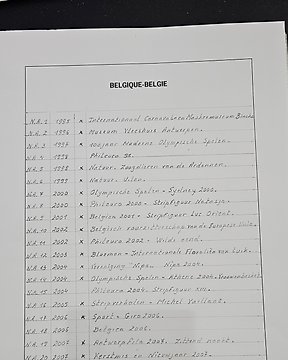 BELGIQUE-BELGIE
N.A. 1 1995 x Internationaal Carnaval en Maskermuseum Binche
N.A. 2 1996 x Museum Vleeshuis Antwerpen.
N.A. 3 1997 x 100 jaar Moderne Olympische Spelen.
N.A. 1998 x Phileura 98.
N.A. 5 1998 x Natuur. Zoogdieren van de Ardennen.
N.A. 6 1999 x Natuur. Uilen.
N.A. 7 2000 x Olympische Spelen - Sydney 2000.
N.A. 8 2000 x Phileura 2000 - Stripfiguur Natasja
N.A. 9 2001 x Belgica 2001 - Stripfiguur Luc Orient.
N.A. 10 2002 x Belgisch voorzitterschap van de Europese Unie.
N.A. 11 2002 x Phileura 2002 - Wilde eend.
N.A. 12 2003 x Bloemen - Internationale Floraliën van Luik.
N.A. 13 2004 x Vereniging "Nipa" Nipa 2004.
N.A. 14 2004 x Olympische Spelen - Athene 2004.
N.A. 15 2004 Phileura 2004. Stripfiguur
N.A. 16 2005 x Stripverhalen - Michel Vaillant.
N.A. 17 2006 x Sport - Giro 2006.
N.A. 18 2006 Belgica 2006.
N.A. 19 2007 x Antwerpfila 2007. Zittend naakt.
N.A. 20 2007 x Kerstmis en Nieuwjaar 2007.